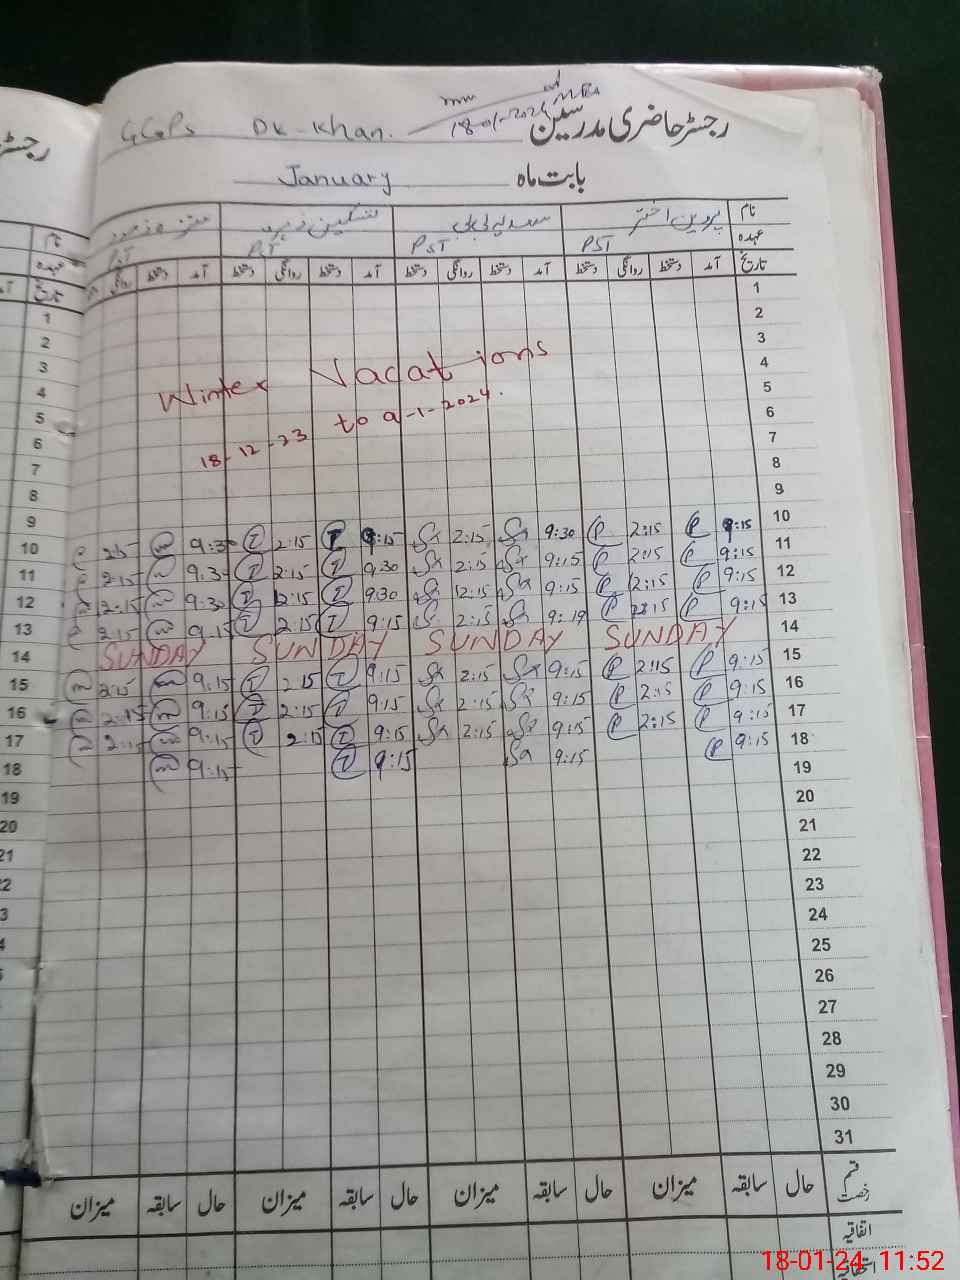 GGPS DK-Khan. 18-01-2024 رجسٹر حاضری مدرسین
بابت ماہ January
نام پروین اختر سعدیہ بی بی تسکین زہرہ
عہدہ PST PST PST PST
تاریخ آمد دستخط روانگی دستخط آمد دستخط روانگی دستخط آمد دستخط روانگی دستخط آمد دستخط روانگی
1
2
3
Winter Vacations
4
18-12-23 to 9-1-2024.
5
6
7
8
9
2:15 m 9:30 T 2:15 T 9:15 Sa 2:15 Sa 9:30 P 2:15 P 9:15 10
2:15 m 9:30 T 2:15 T 9:30 Sa 2:15 Sa 9:15 P 2:15 P 9:15 11
2:15 m 9:30 T 2:15 T 9:30 Sa 2:15 Sa 9:15 P 2:15 P 9:15 12
2:15 m 9:15 T 2:15 T 9:15 Sa 2:15 Sa 9:19 P P 9:15 13
SUNDAY SUNDAY SUNDAY SUNDAY 14
m 2:15 m 9:15 T 2:15 T 9:15 Sa 2:15 Sa 9:15 P 2:15 P 9:15 15
m 2:15 m 9:15 T 2:15 T 9:15 Sa 2:15 Sa 9:15 P 2:15 P 9:15 16
m 2:15 m 9:15 T 2:15 T 9:15 Sa 2:15 Sa 9:15 P 2:15 P 9:15 17
m 9:15 T 9:15 Sa 9:15 P 9:15 18
19
20
21
22
23
24
25
26
27
28
29
30
31
قسم رخصت حال سابقہ میزان حال سابقہ میزان حال سابقہ میزان حال سابقہ میزان
اتفاقیہ
18-01-24 11:52
رجسٹر
نام
عہدہ
تاریخ
1
2
3
4
5
6
7
8
9
10
11
12
13
14
15
16
17
18
19
20
21